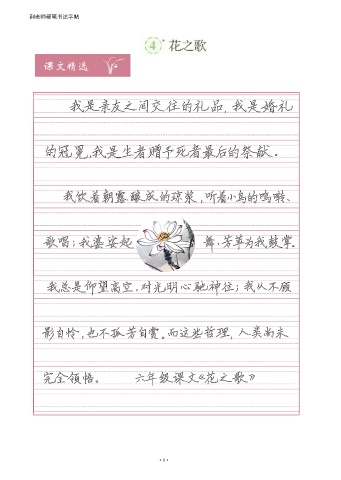 副老师硬笔书法字帖
4* 花之歌
课文精选
我是亲友之间交往的礼品,我是婚礼
的冠冕,我是生者赠予死者最后的祭献。
我饮着朝露酿成的琼浆,听着小鸟的鸣啭、
歌唱;我婆娑起 舞,芳草为我鼓掌。
我总是仰望高空,对光明心驰神往;我从不顾
影自怜,也不孤芳自赏。而这些哲理,人类尚未
完全领悟。 六年级课文《花之歌》